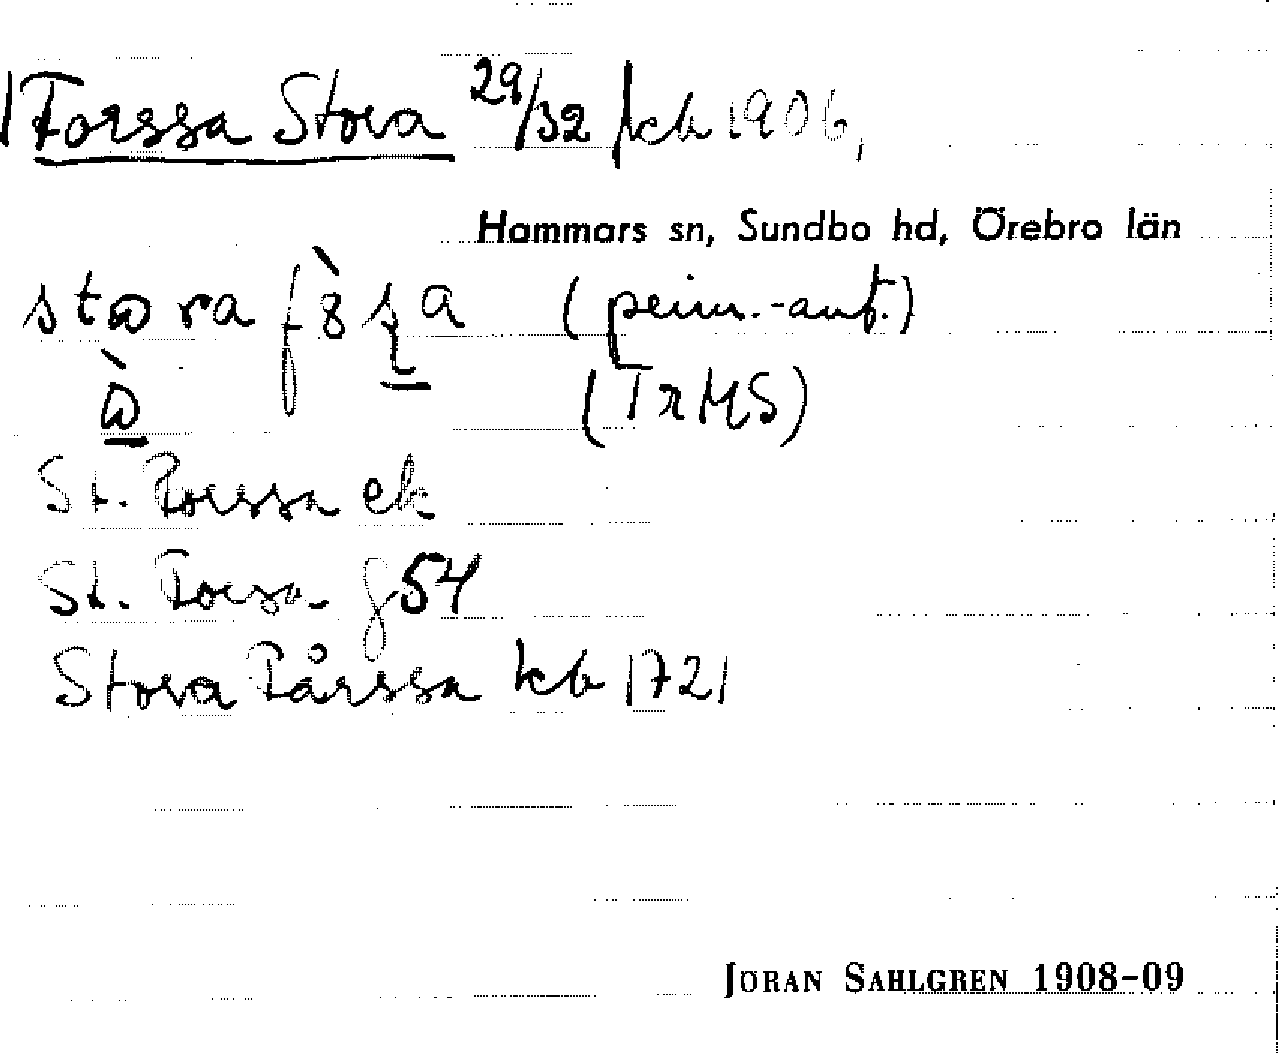 Forssa Stora 29/32 kb 1906,
Hammars sn, Sundbo hd, Örebro län
(prim.-ant.)
(TrMS)
St. Forssa ek
St. Forsa g 54
Stora Fårssa kb 1721
JÖRAN SAHLGREN 1908-09